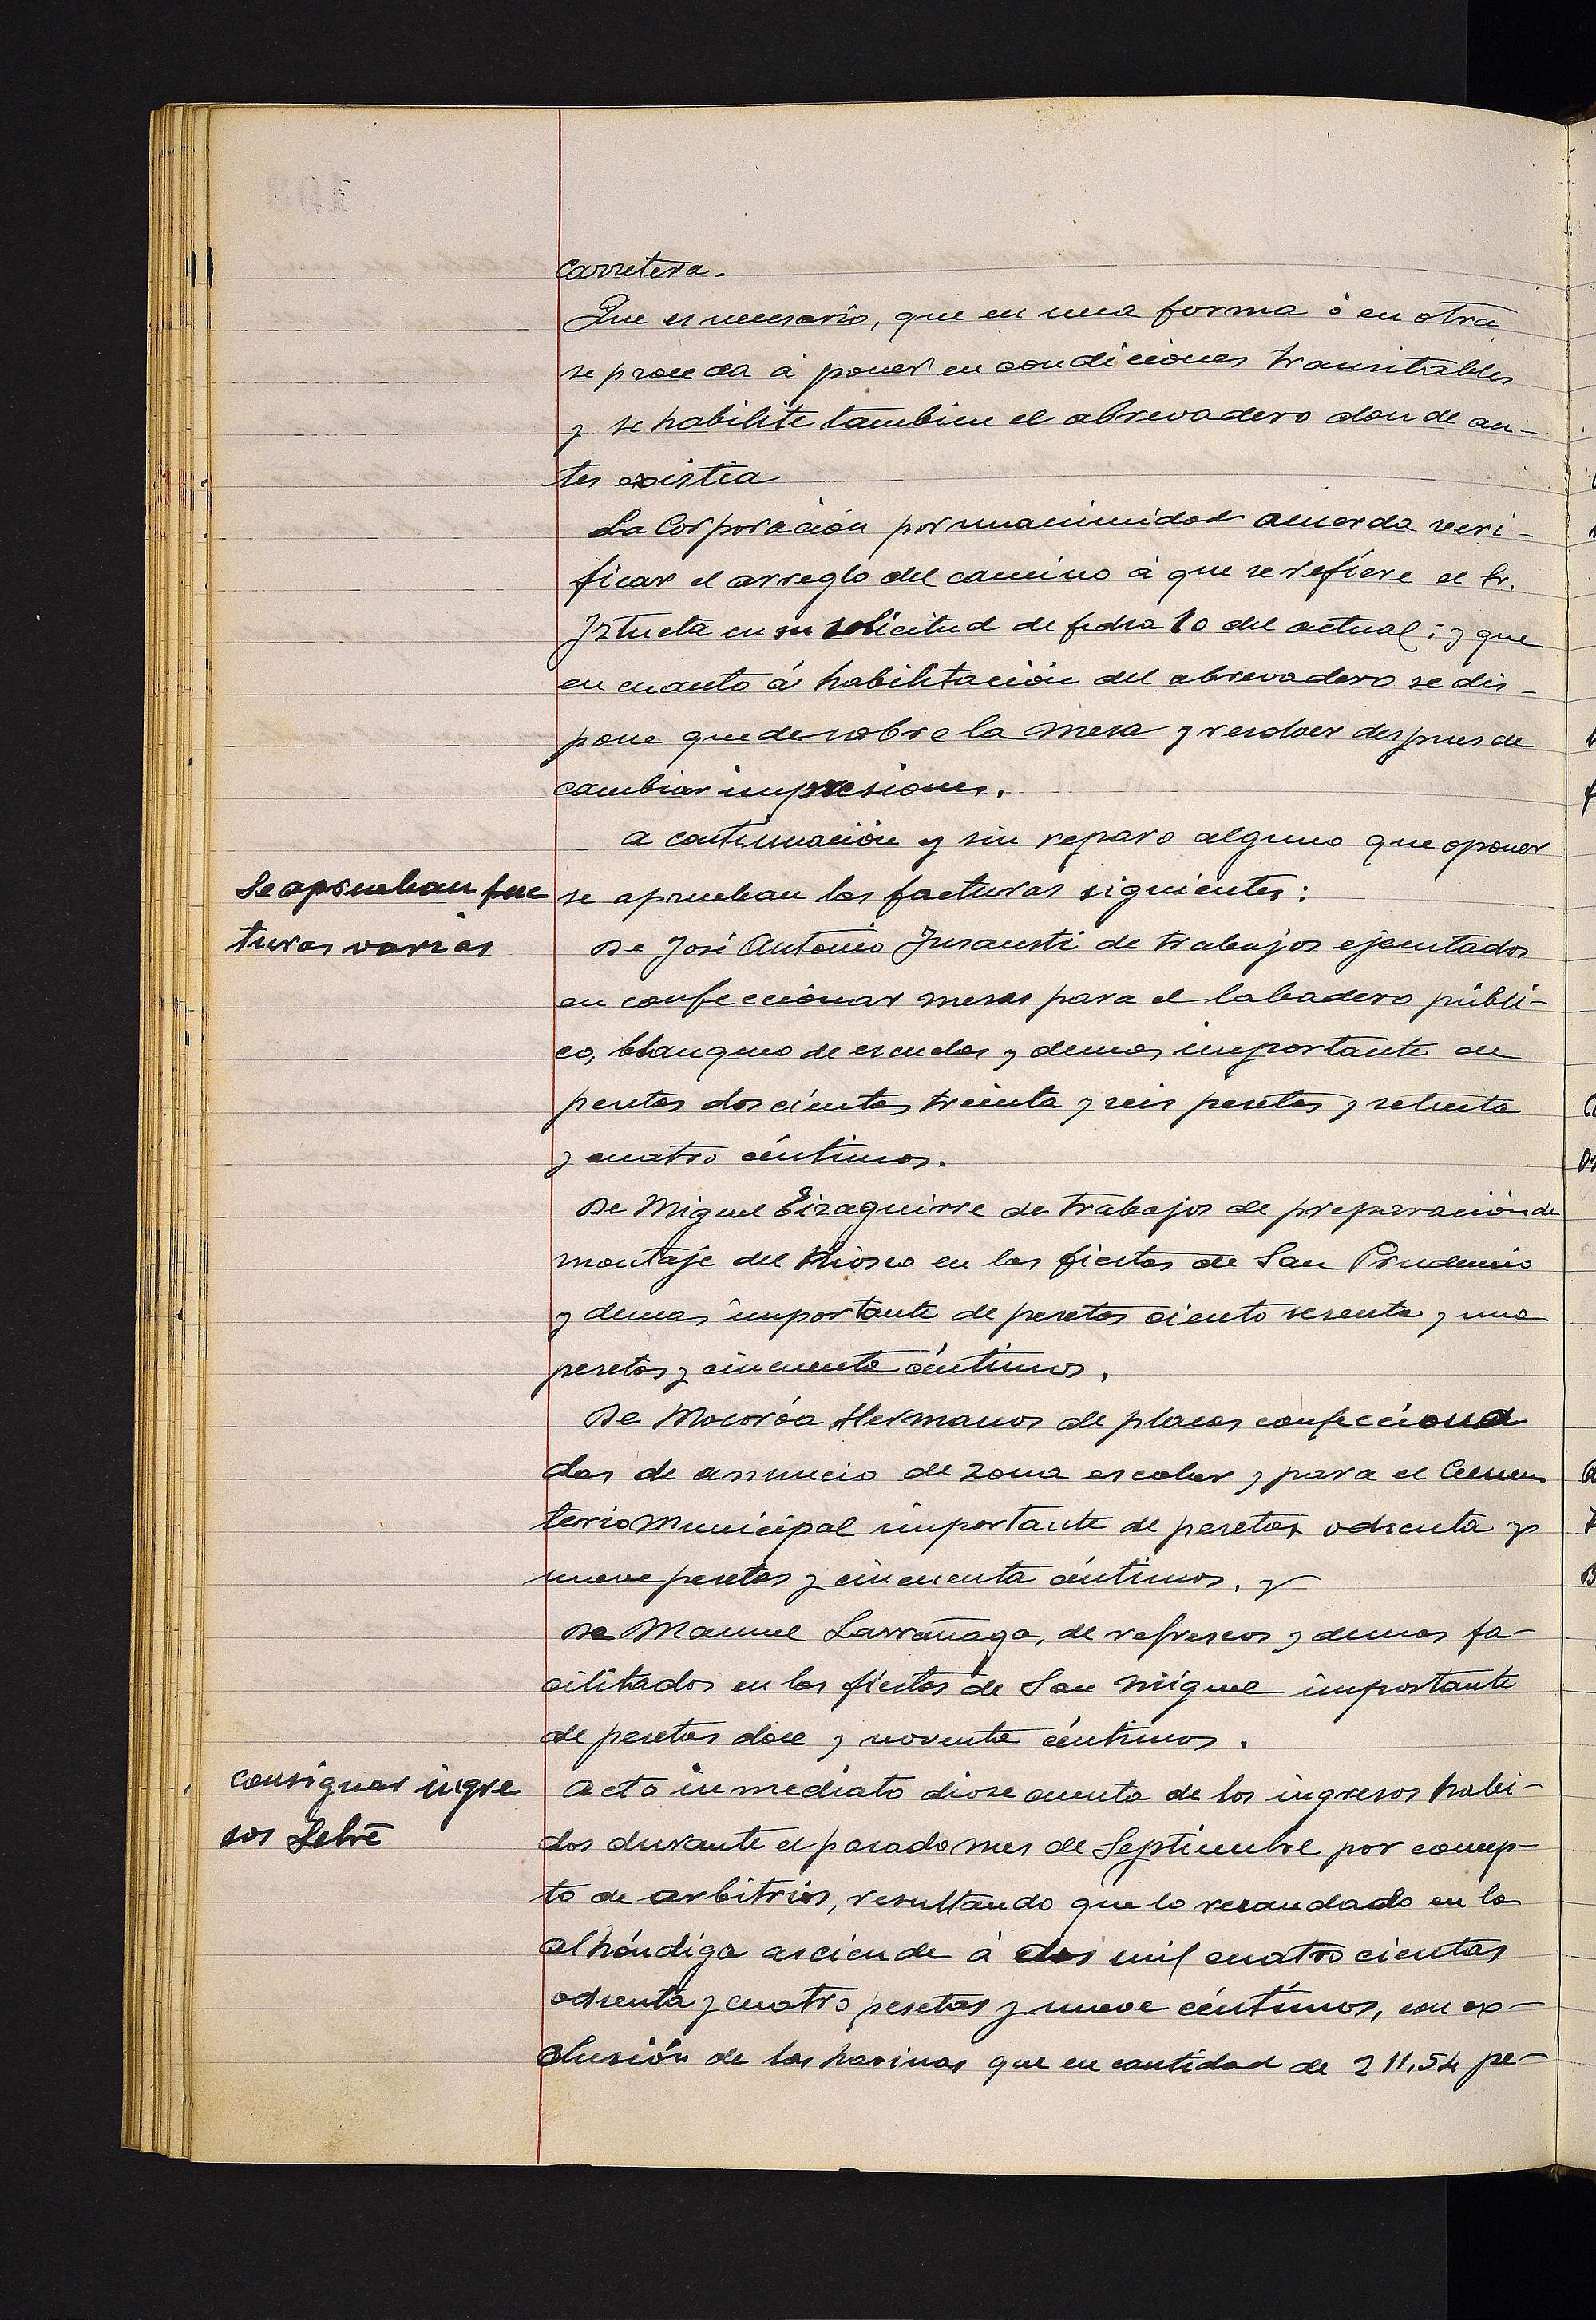 carretera.
Que es necesario, que en una forma ó en otra
se proceda á poner en condiciones transitables
y se habilite tambien el abrevadero donde an-
tes existia
La Corporación por unanimidad acuerda veri-
ficar el arreglo del camino á que se refiere el Sr.
Iztueta en su solicitud de fecha 10 del actual; y que
en cuanto á habilitación del abrevadero se dis-
pone quede sobre la mesa y resolver despues de
cambiar impresiones.
A continuación y sin reparo alguno que oponer
Se aprueban fac
turas varias
se aprueban las facturas siguientes:
De José Antonio Insausti de trabajos ejecutados
en confeccionar mesas para el labadero públi-
co, blanqueo de escuelas y demas importante de
pesetas doscientas treinta y seis pesetas y setenta
y cuatro céntimos.
De Miguel Eizaguirre de trabajos de preparación de
montaje del Kiosco en las fiestas de San Prudencio
y demas importante de pesetas ciento sesenta y una
pesetas y cincuenta céntimos.
De Mocoróa Hermanos de placas confecciona
das de anuncio de zona escolar y para el Cemen
terio Municipal importante de pesetas ochenta y
nueve pesetas y cincuenta céntimos. y
De Manuel Larrañaga, de refrescos y demas fa-
cilitados en las fiestas de San Miguel importante
de pesetas doce y noventa céntimos.
consignar ingre
sos Sebre
Acto inmediato diose cuenta de los ingresos habi-
dos durante el pasado mes de Septiembre por concep-
to de arbitrios, resultando que lo recaudado en la
alhóndiga asciende á dos mil cuatrocientas
ochenta y cuatro pesetas y nueve céntimos, con ex-
clusión de las harinas que en cantidad de 211,54 pe-